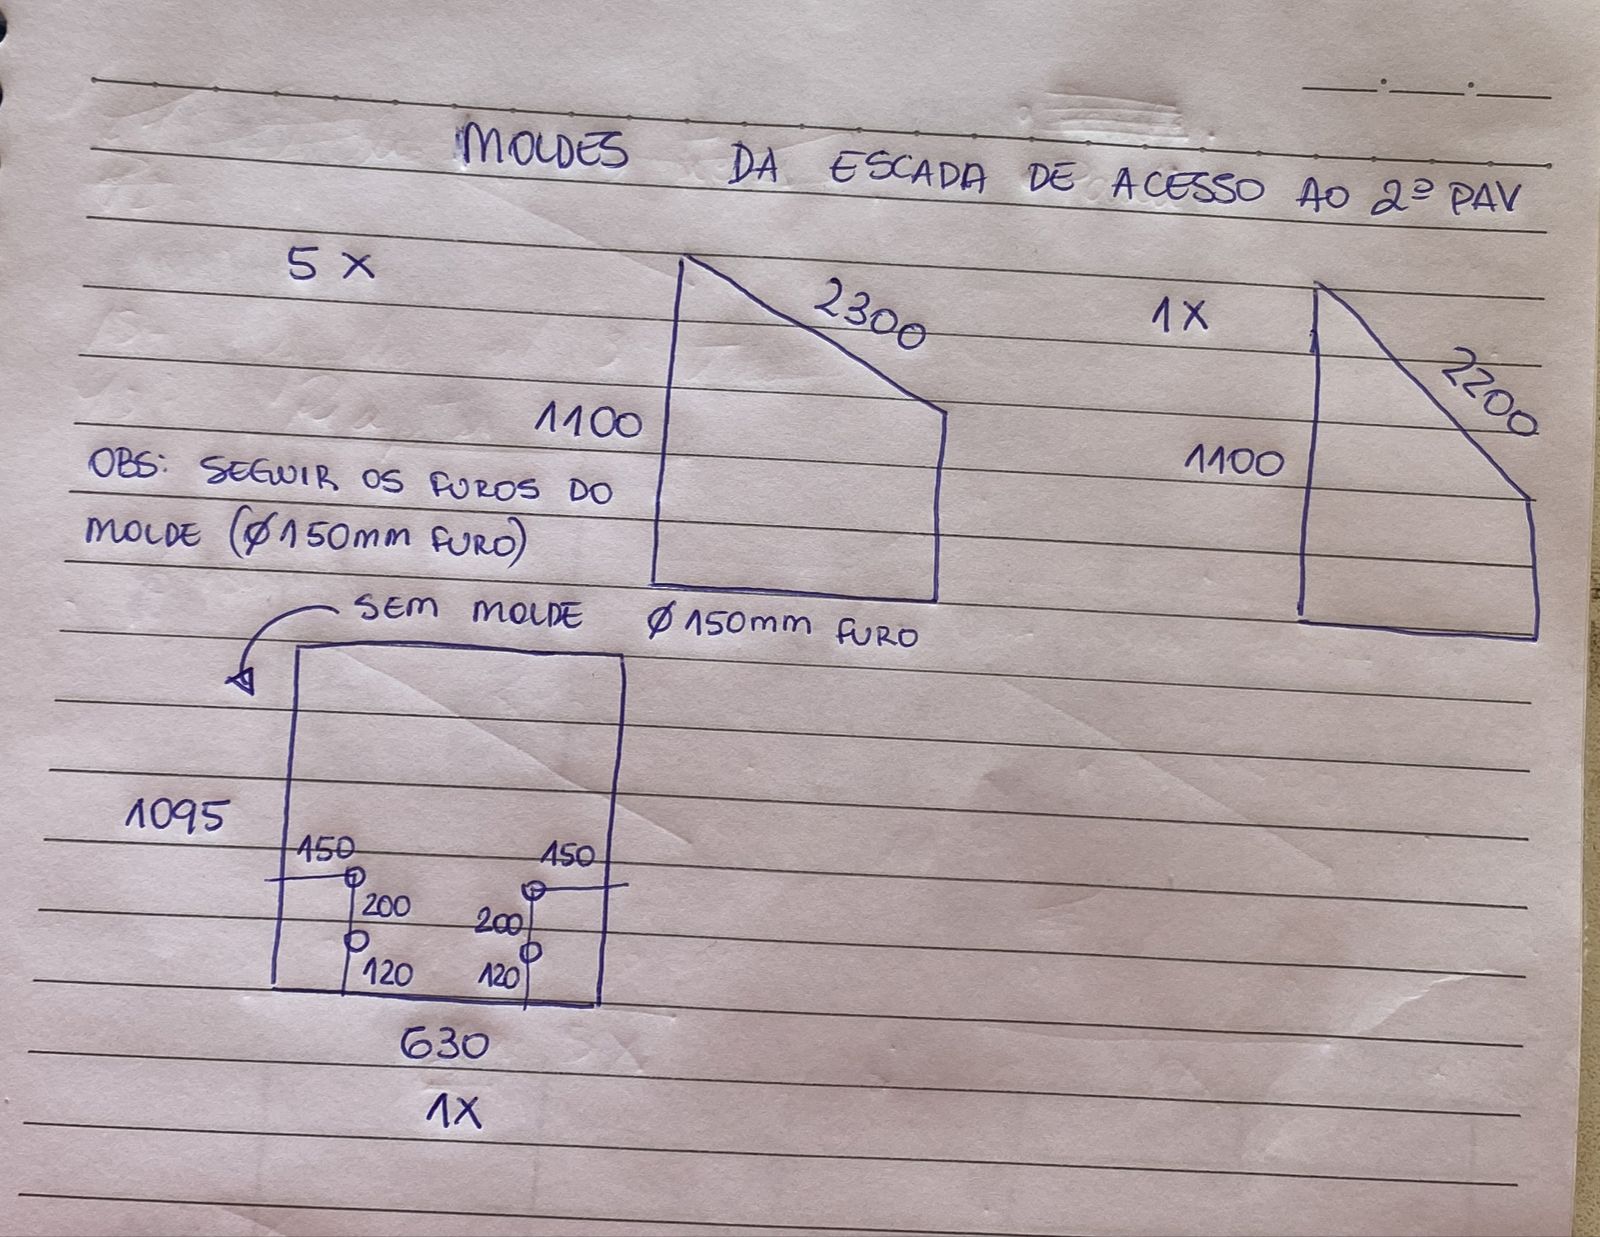 MOLDES DA ESCADA DE ACESSO AO 2º PAV
5 X
2300
1100
1X
2200
1100
OBS: SEGUIR OS FUROS DO
MOLDE (Ø150mm FURO)
SEM MOLDE
Ø150mm FURO
1095
150
150
200
200
120
120
630
1X